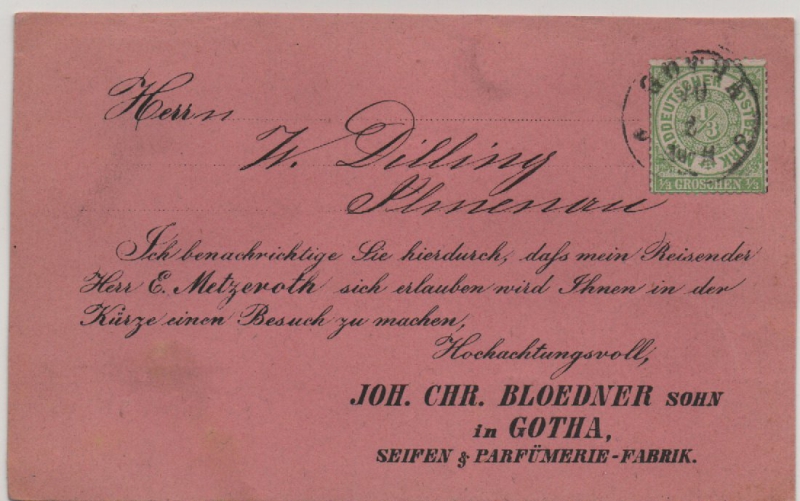 Herrn
W. Dilling
Ilmenau
NORDDEUTSCHER POSTBEZIRK
1/3
1/3 GROSCHEN 1/3
GOTHA
Ich benachrichtige Sie hierdurch, daſs mein Reisender
Herr E. Metzeroth sich erlauben wird Ihnen in der
Kürze einen Besuch zu machen,
Hochachtungsvoll,
JOH. CHR. BLOEDNER SOHN
in GOTHA,
SEIFEN & PARFÜMERIE-FABRIK.